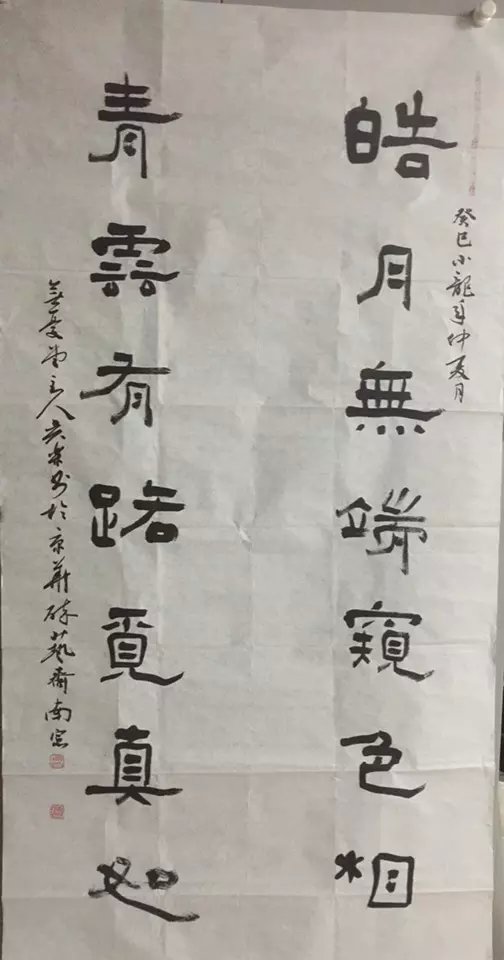 癸巳小龍年仲夏月
皓月無端窺色相
青雲有路覓真如
無憂堂主人 於京華 藝齋南窗